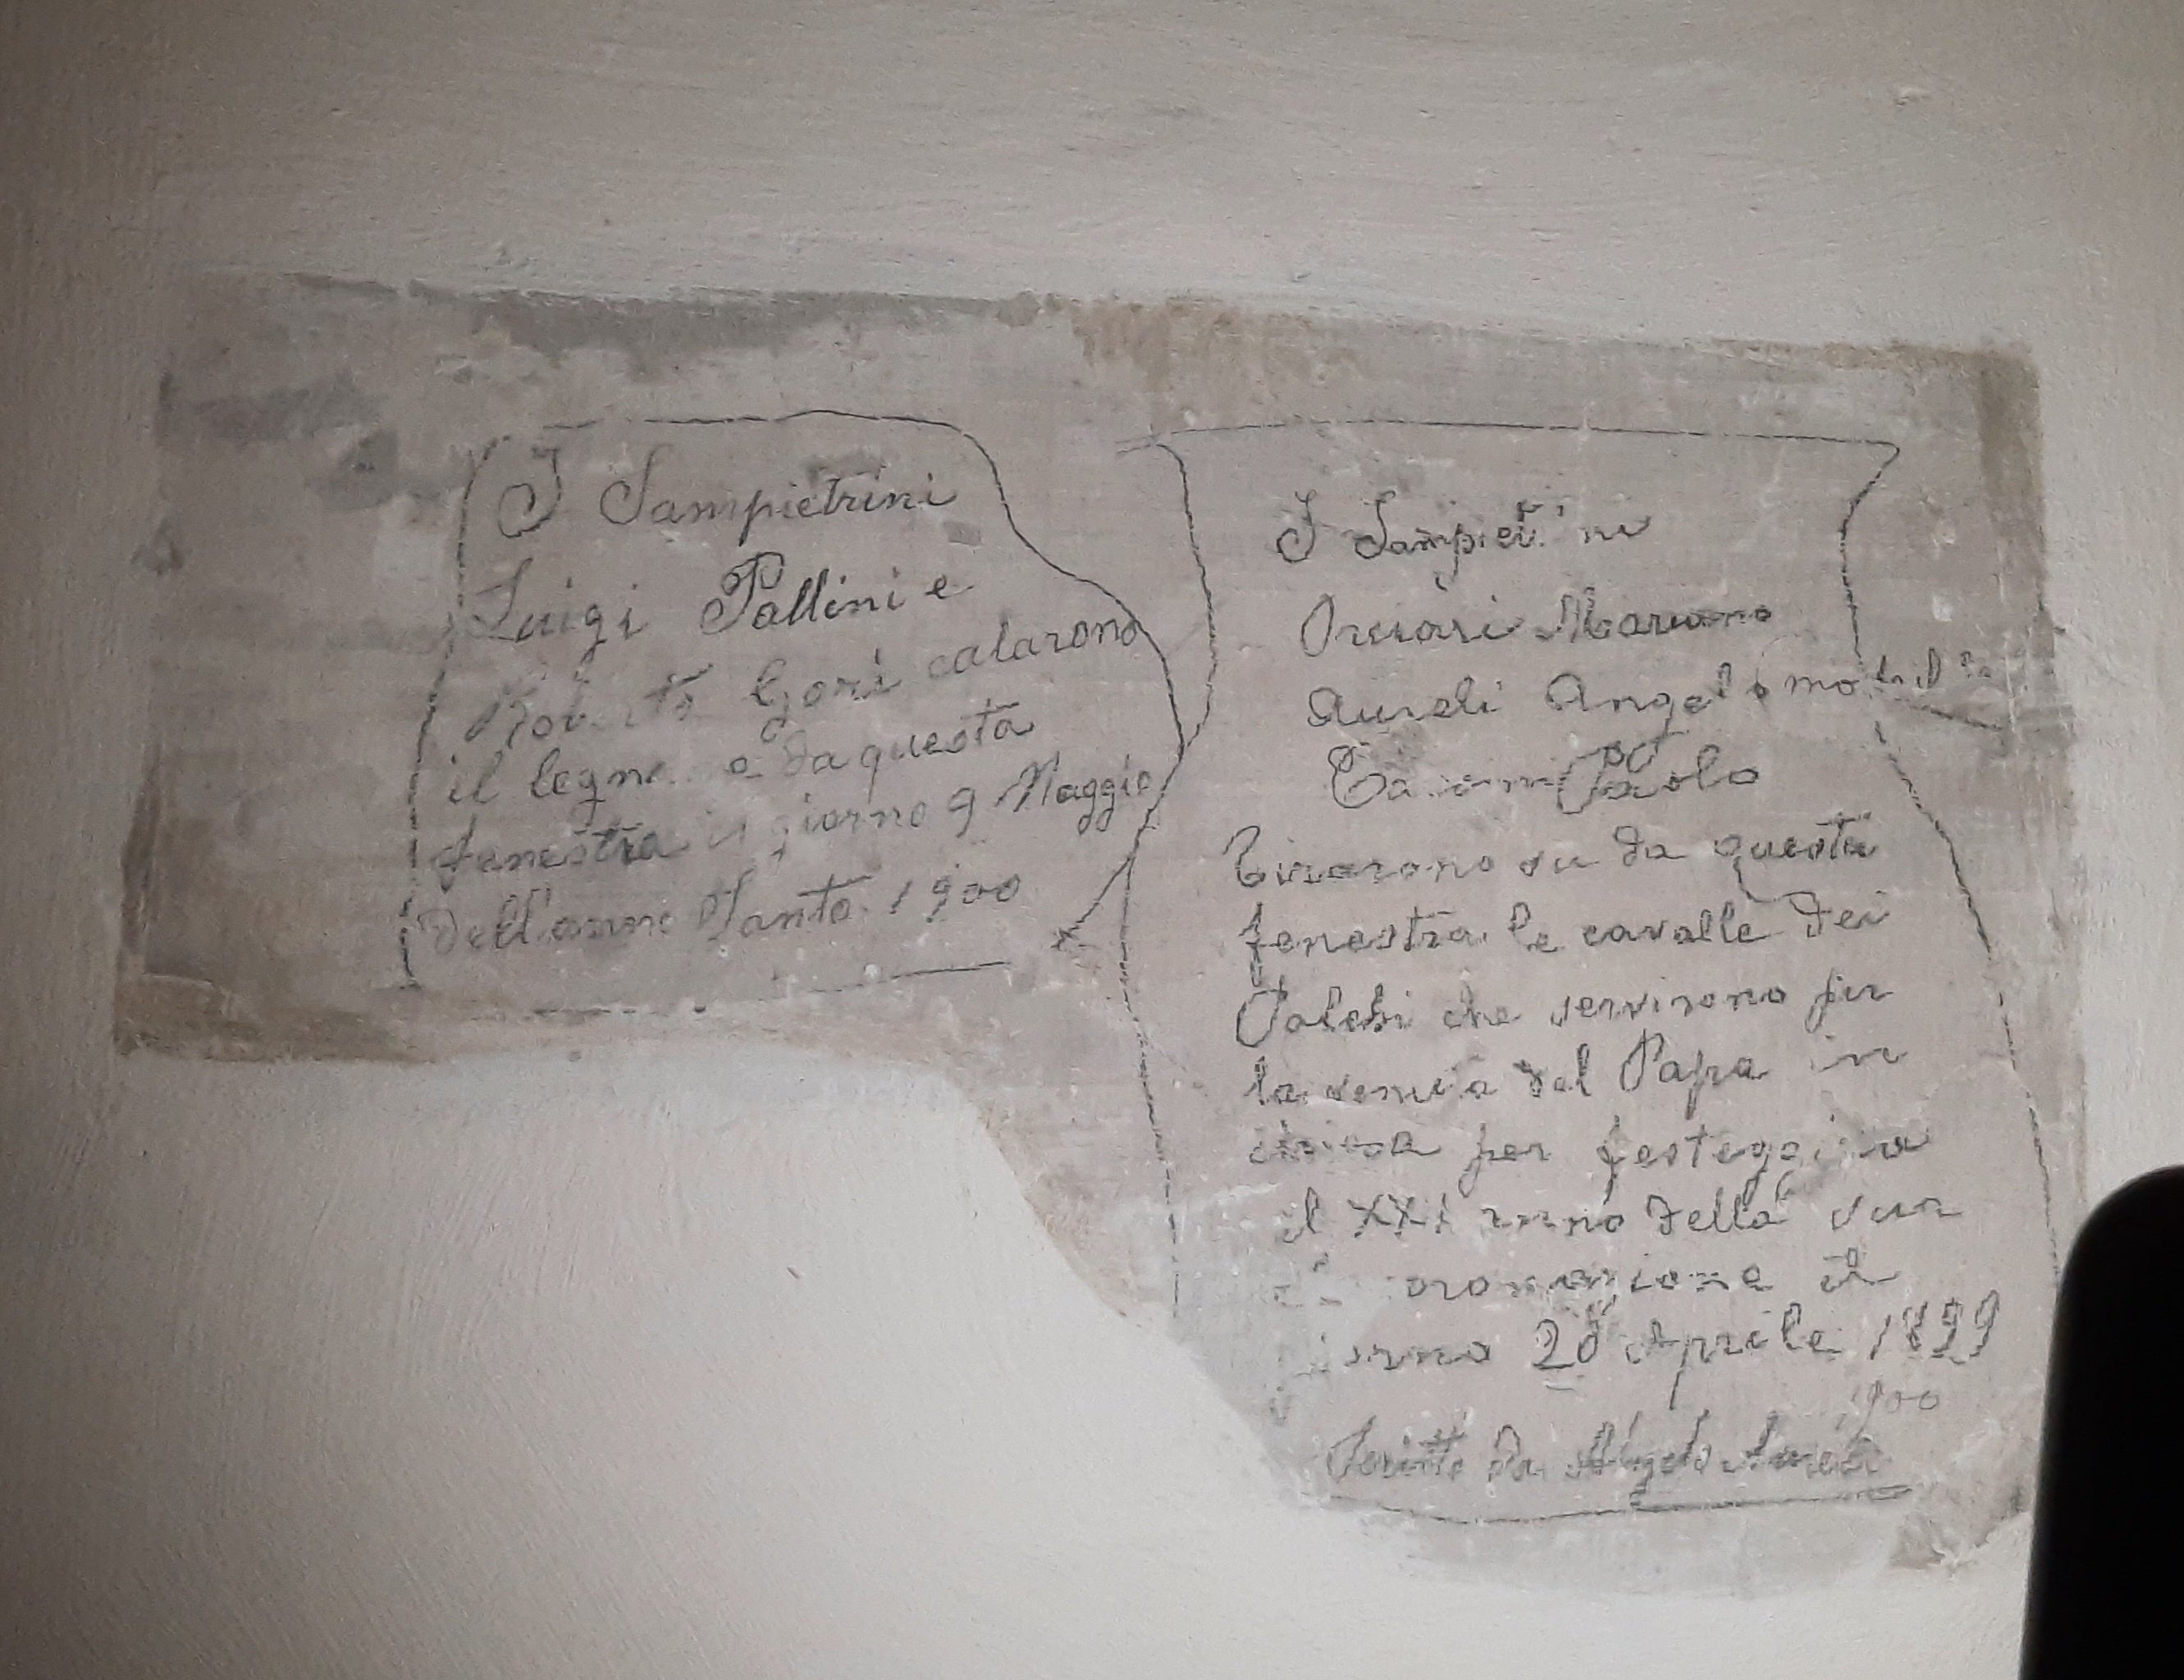 I Sampietrini
Luigi Pallini e
Roberto Gori calarono
il legname da questa
fenestra il giorno 9 Maggio
dell'anno Santo 1900
I Sampietrini
Mariano
Aureli Angelo
Paolo
tirarono su da questa
fenestra le cavalle dei
Palchi che servirono per
la venuta del Papa in
chiesa per festeggiare
il XXI anno della sua
il
giorno 20 Aprile 1899
1900
Scritto da Angelo Aureli